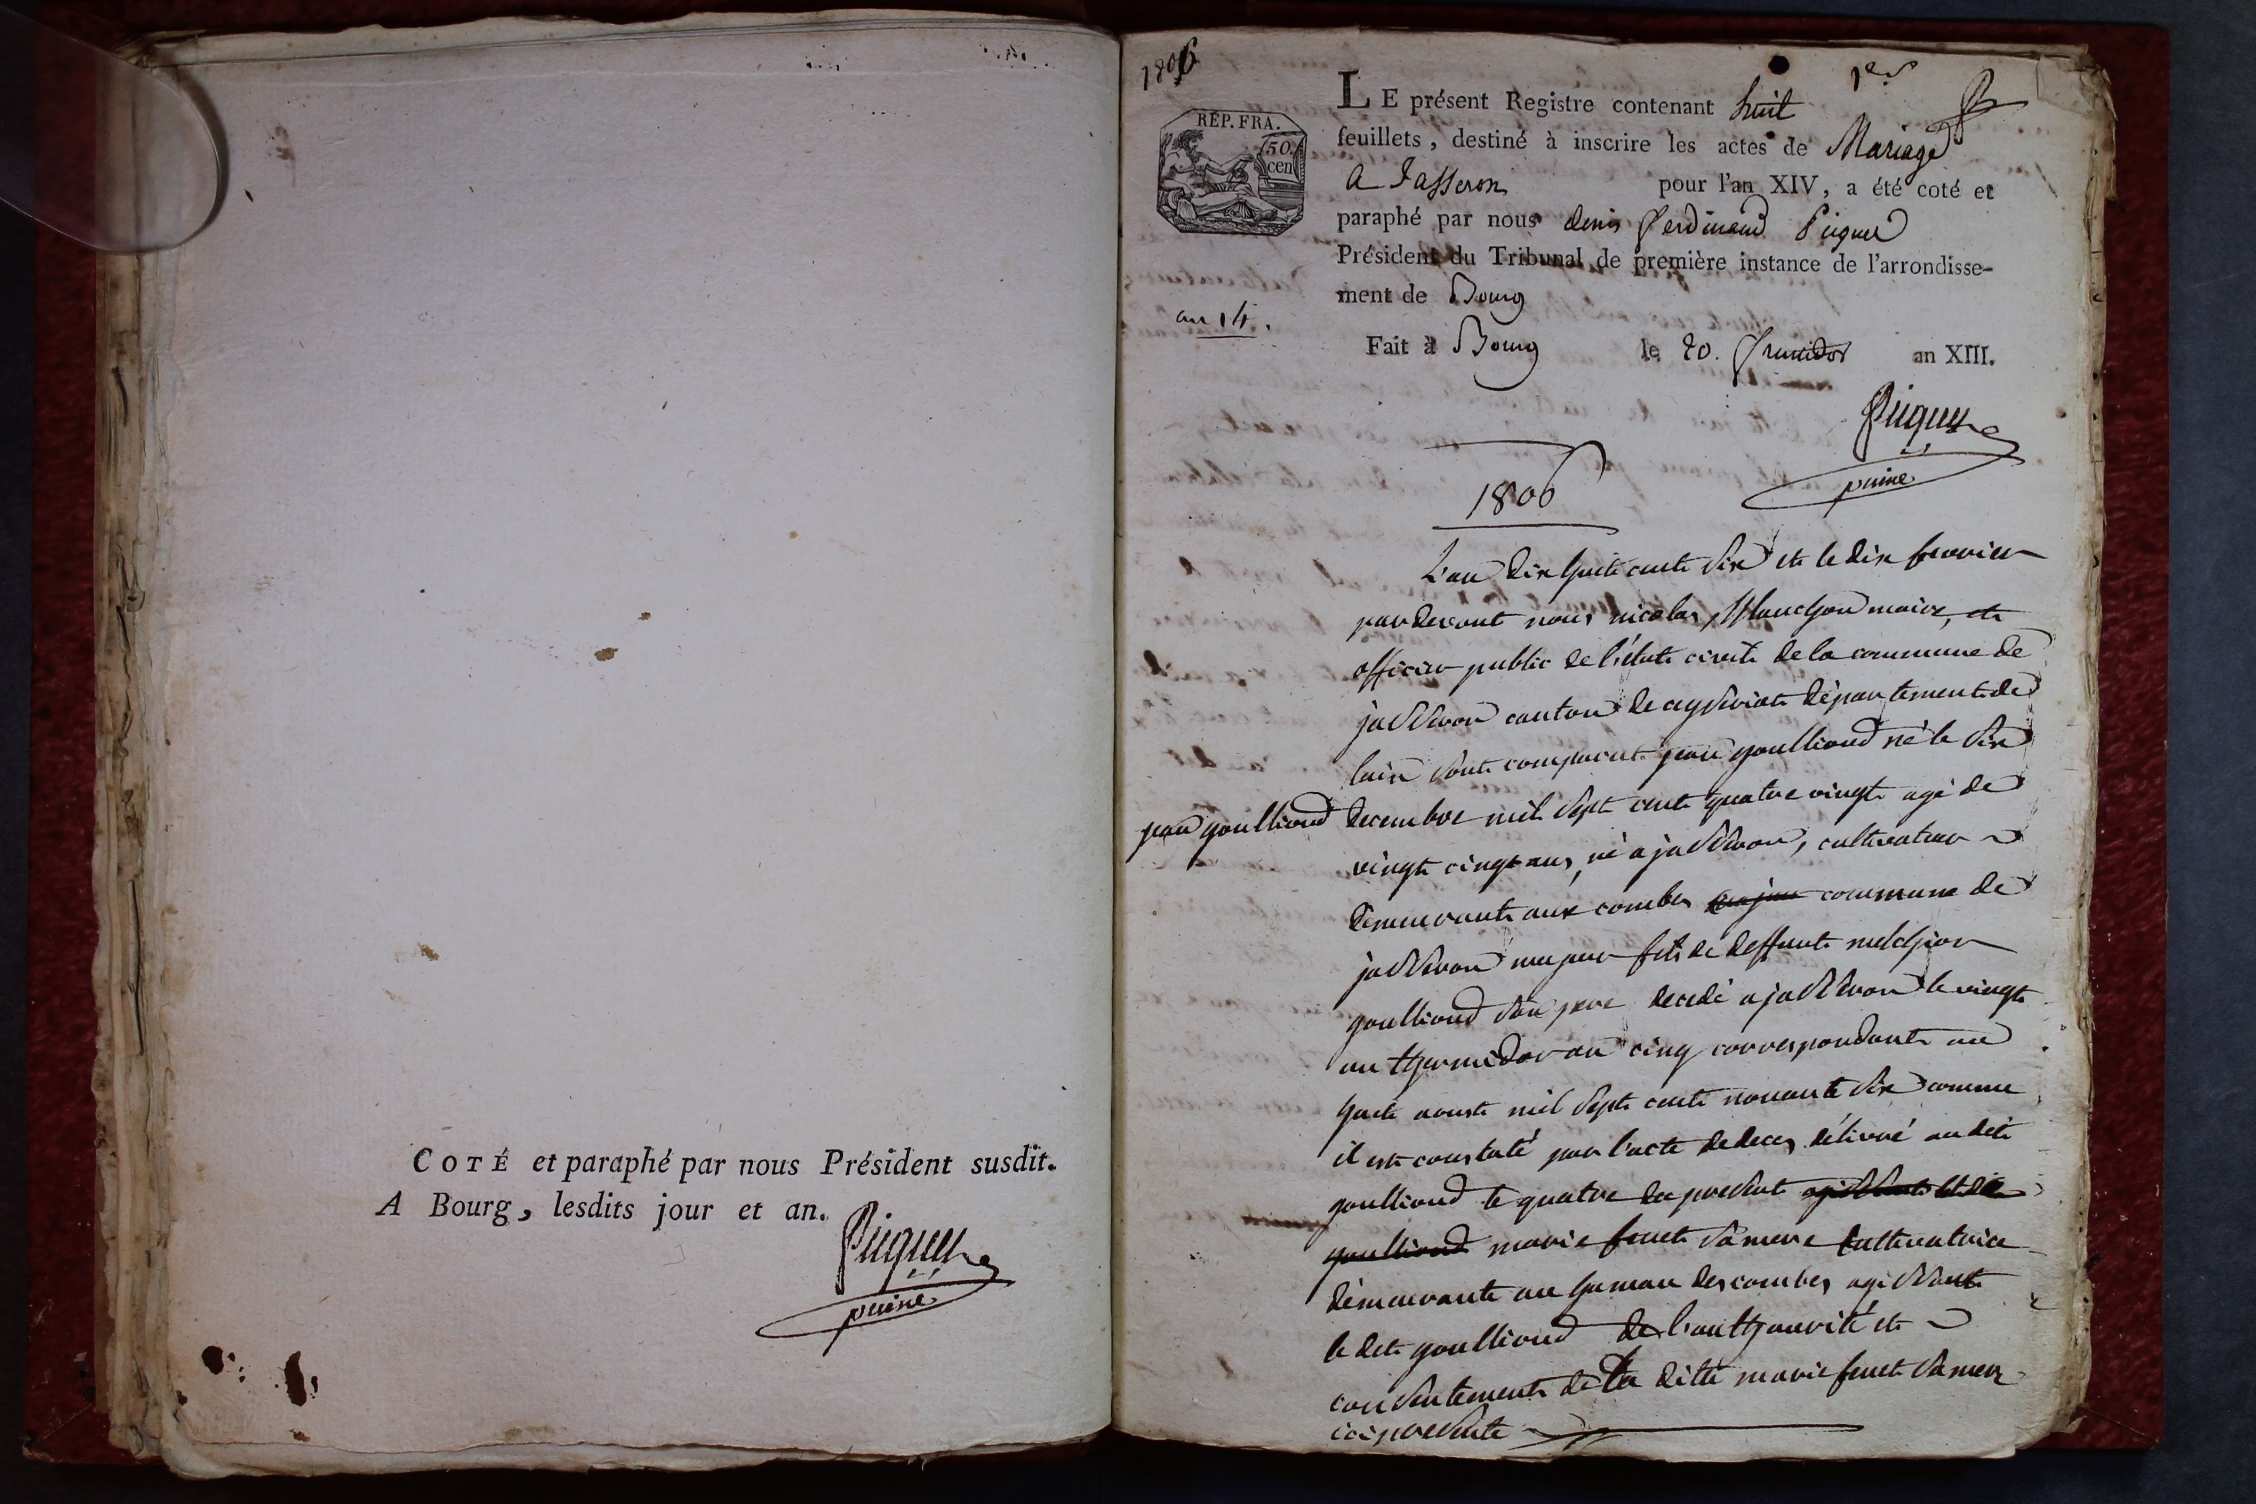 COTÉ et paraphé par nous Président susdit.
A Bourg, lesdits jour et an.
Picquet
puiné
1806
1er
RÉP. FRA.
50.
cen
LE présent Registre contenant huit
feuillets, destiné à inscrire les actes de Mariage
a Jasseron pour l'an XIV, a été coté et
paraphé par nous denis ferdinand Picquet
Président du Tribunal de première instance de l'arrondisse-
ment de Bourg
an 14.
Fait à Bourg le 20. fructidor an XIII.
Picquet
puiné
1806
L'an dix huit cent six et le dix fevrier
pardevant nous nicolas maire, et
officier public de l'état civil de la commune de
jasseron canton de ceyseriat département de
lain sont comparut jean goullioud né le six
jean goullioud
decembre mil sept cent quatre vingt agé de
vingt cinq ans, né a jasseron, cultivateur
demeurant aux combes commune de
jasseron majeur fils de deffunt melchior
goullioud son pere decedé a jasseron le vingt
un thermidor an cinq correspondant au
huit aoust mil sept cent nonante six comme
il est constaté par l'acte de deces délivré au dit
goullioud le quatre du present
goullioud marie feuet sa mere cultivatrice
demeurante au hameau des combes agissant
le dit goullioud de l'authorité et
consentement de la ditte marie feuet sa mere
ici presente